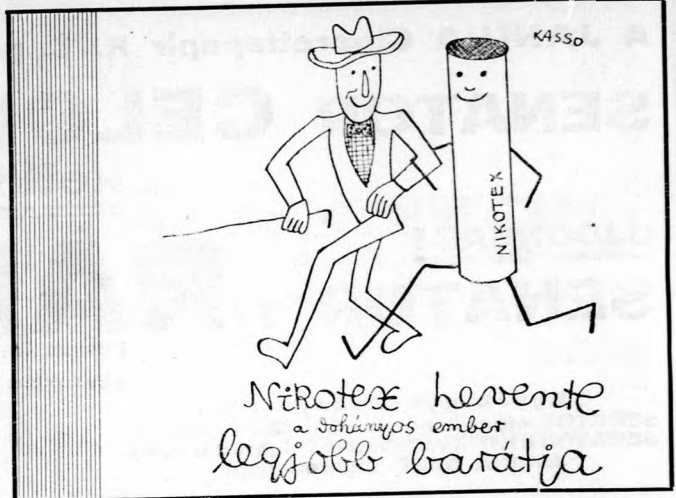 KASSO
NIKOTEX
Nikotex levente
a dohányos ember
legjobb barátja